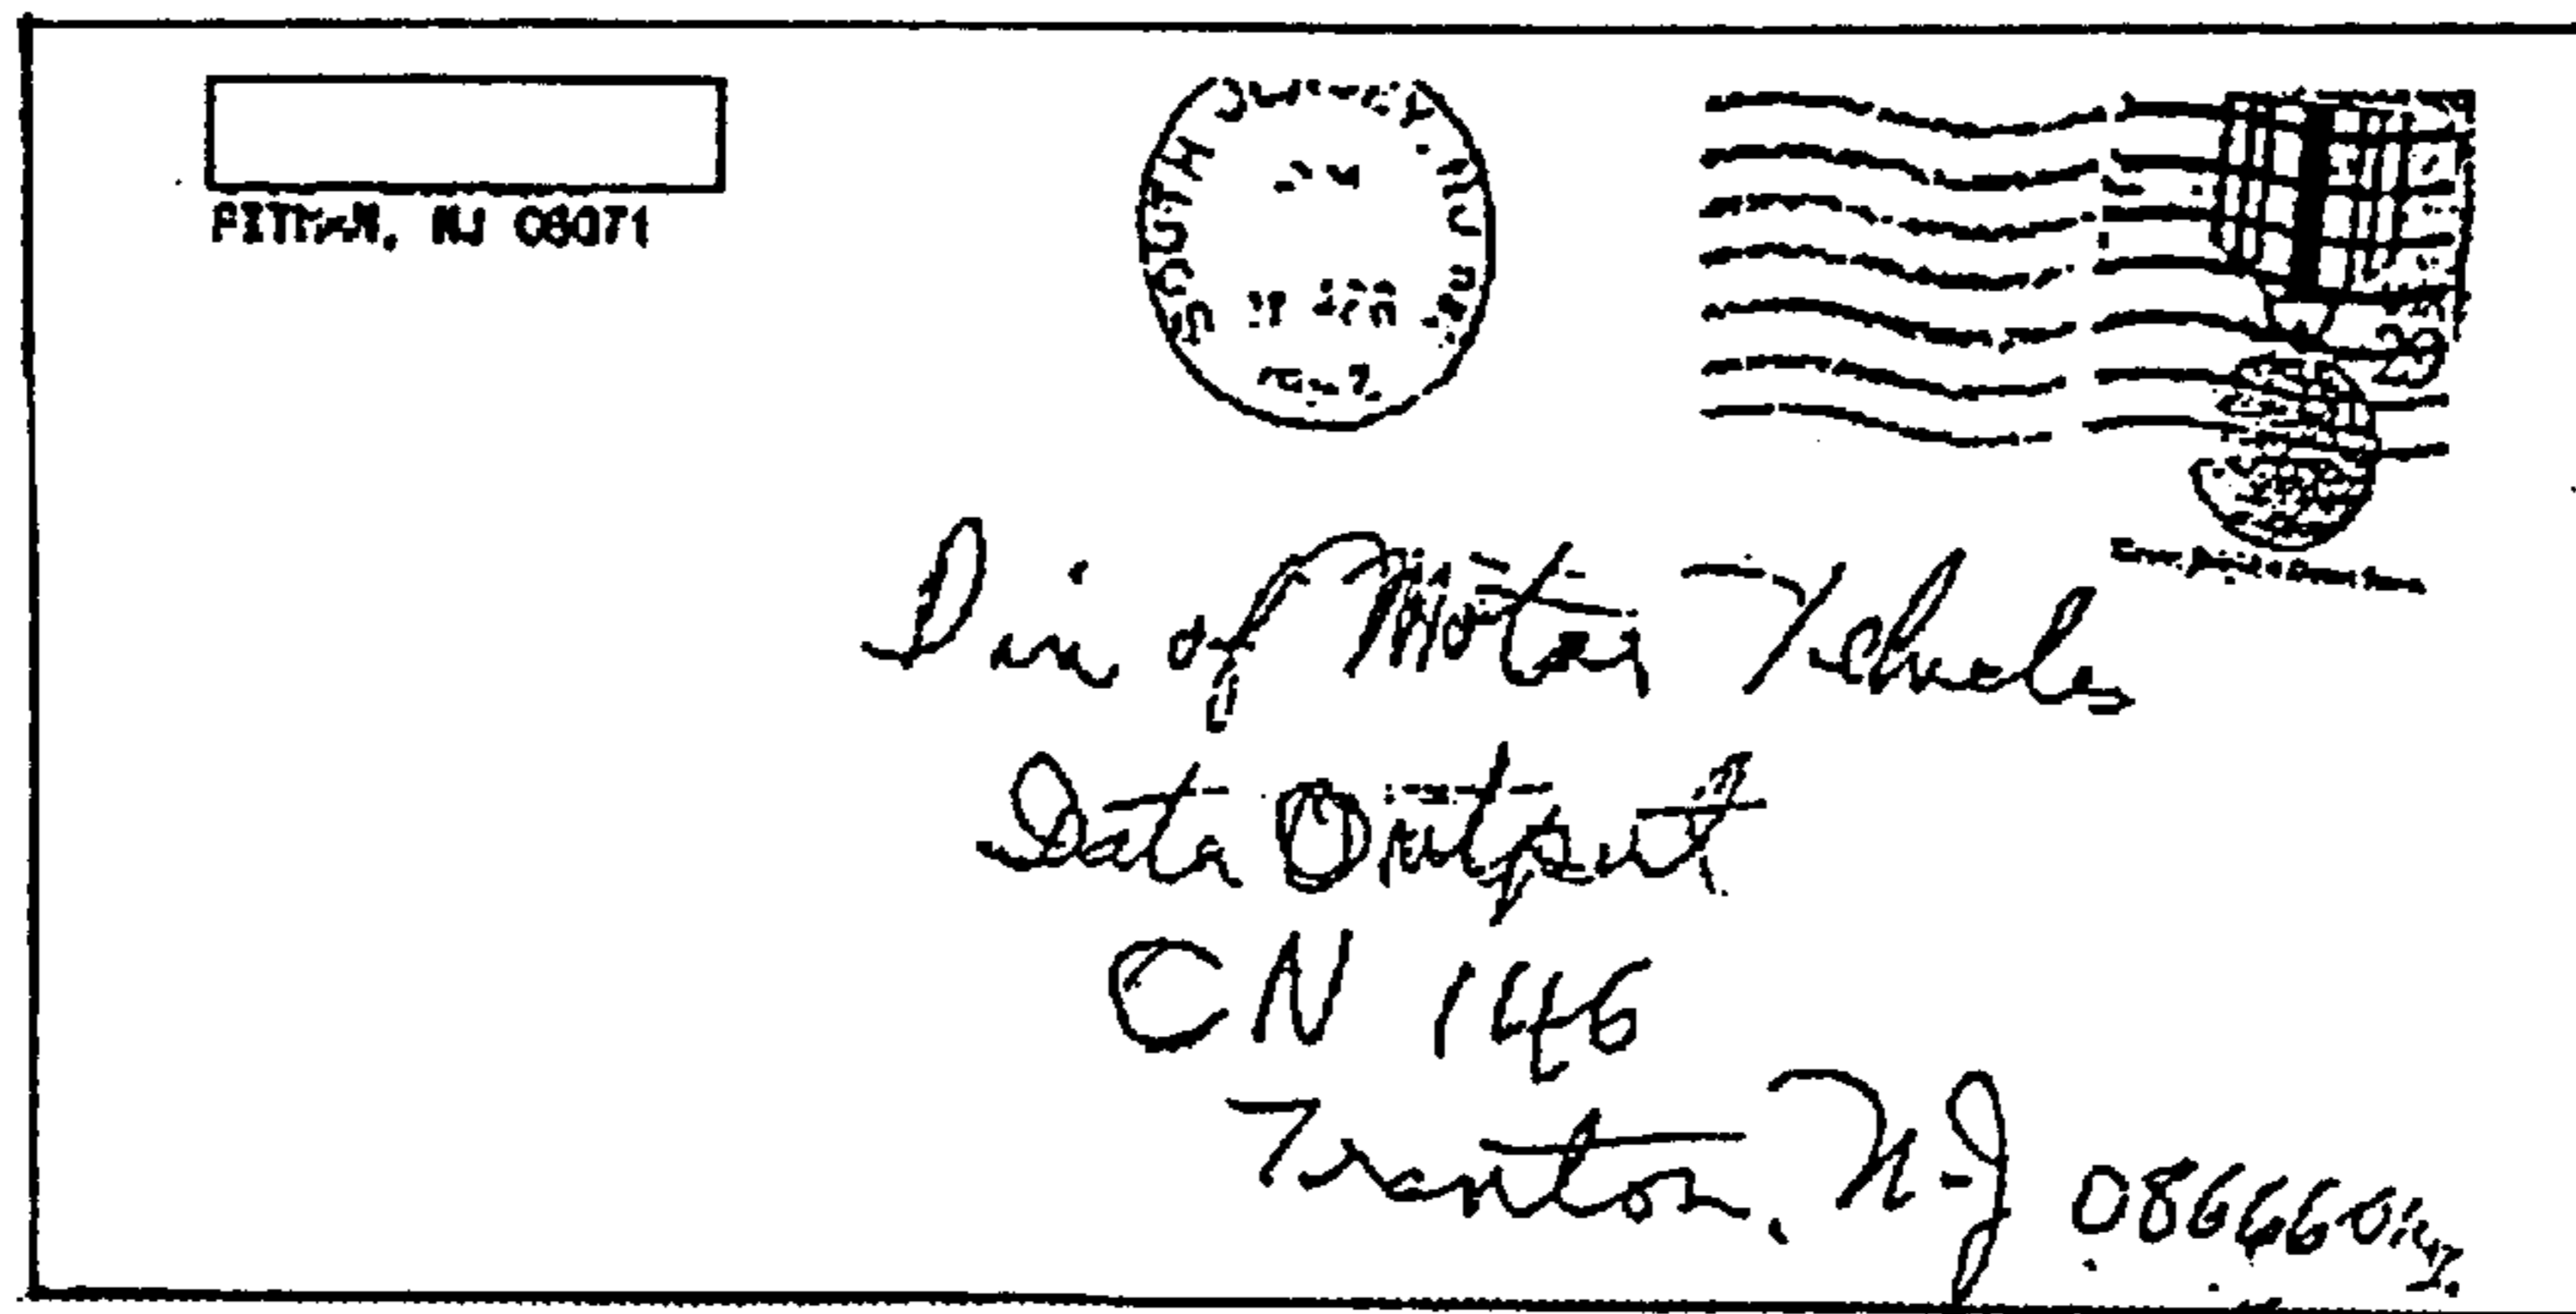 PITMAN, NJ 08071
SOUTH JERSEY, NJ
PM
APR
23
Div of Motor Vehicles
Data Output
CN 146
Trenton, N-J 08666